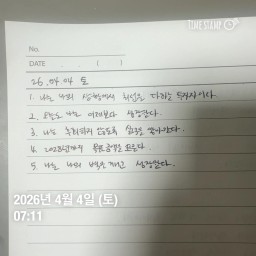 TIME STAMP
No.
DATE . . ( )
26. 04. 04 토
1. 나는 나의 삶에서 최선을 다하는 투자자이다.
2. 오늘도 나는 어제보다 성장한다.
3. 나는
4. 2028년까지 목표금액을
5. 나는 나의 벽을 깨고 성장한다.
2026년 4월 4일 (토)
07:11